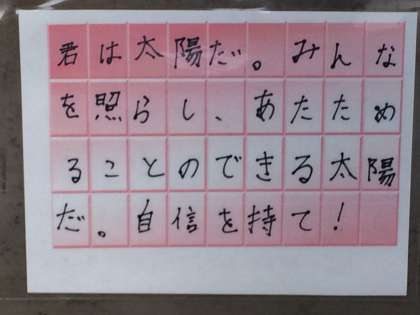 君は太陽だ。みんな
を照らし、あたため
ることのできる太陽
だ。自信を持て！